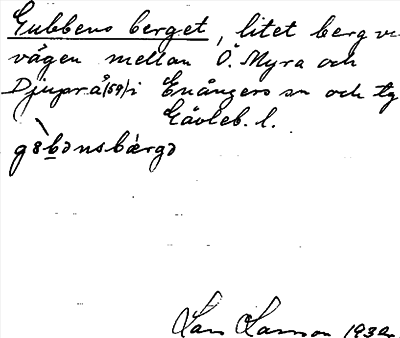 Gubbens berget, litet berg v.
vägen mellan Ö. Myra och
Djuprå (59) i Enångers sn och tg
Gävleb. l.
gòbənsbærgə
Lars Larsson 1932